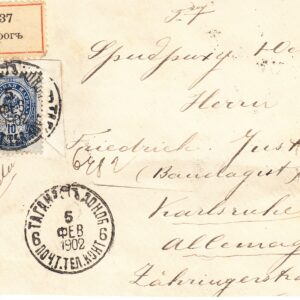 37
рогъ
Фридриху
Herrn
Friedrich Just
6482
(Bandagist)
Karlsruhe
Allemag
Zähringerstr
10
ТАГАНРОГЪ ДОНОБ.
5
ФЕВ
1902
6 6
ПОЧТ.ТЕЛ.КОНТ.